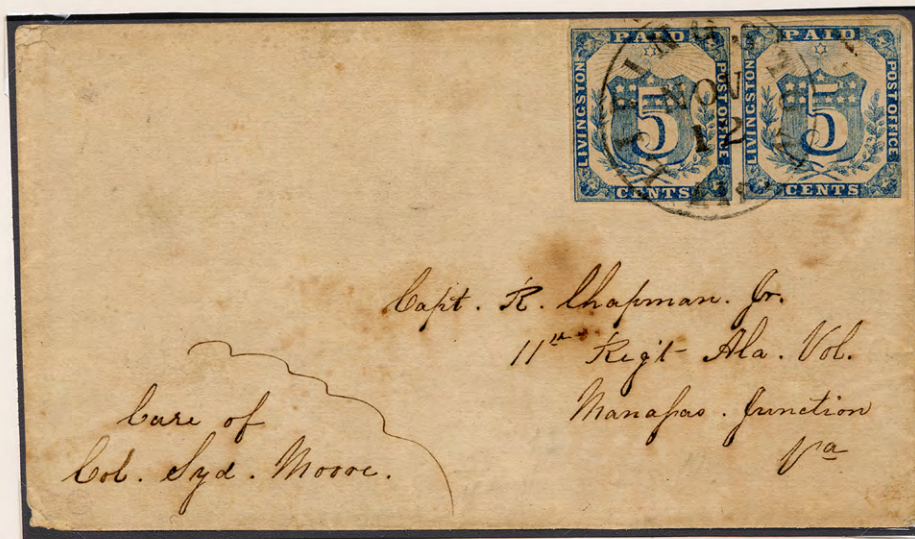 PAID
LIVINGSTON
5
POST OFFICE
CENTS
PAID
LIVINGSTON
5
POST OFFICE
CENTS
NOV
12
Capt. R. Chapman. Jr.
11th Reg't Ala. Vol.
Manassas. Junction
Va
Care of
Col. Syd. Moore.